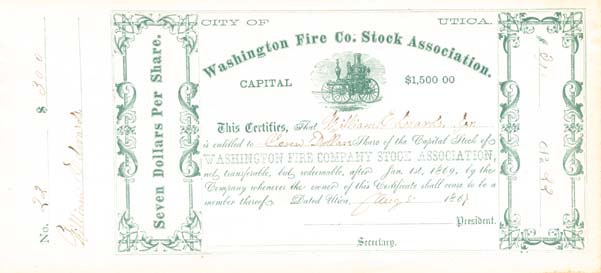 CITY OF UTICA.
Washington Fire Co. Stock Association.
CAPITAL $1,500 00
This Certifies, That William Edwards, Jr
is entitled to Seven Dollars Share of the Capital Stock of
WASHINGTON FIRE COMPANY STOCK ASSOCIATION,
not transferable, but redeemable, after Jan. 1st, 1869, by the
Company whenever the owner of this Certificate shall cease to be a
member thereof. Dated Utica, Aug 186
President.
Secretary.
Seven Dollars Per Share.
No. 22
William Edwards
$